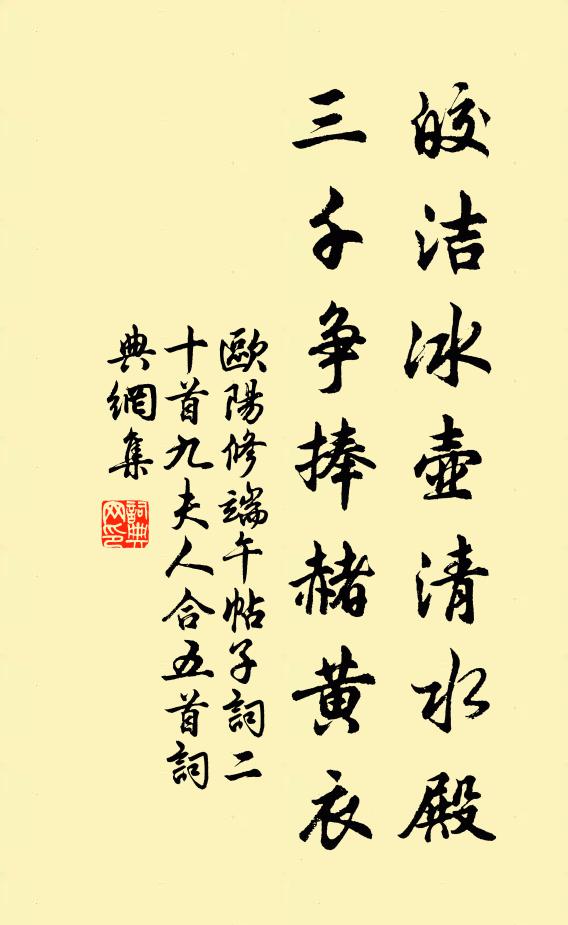 皎洁冰壺清水殿
三千争捧赭黃衣
歐陽修端午帖子詞二
十首九夫人合五首詞
典網集
詞典網印